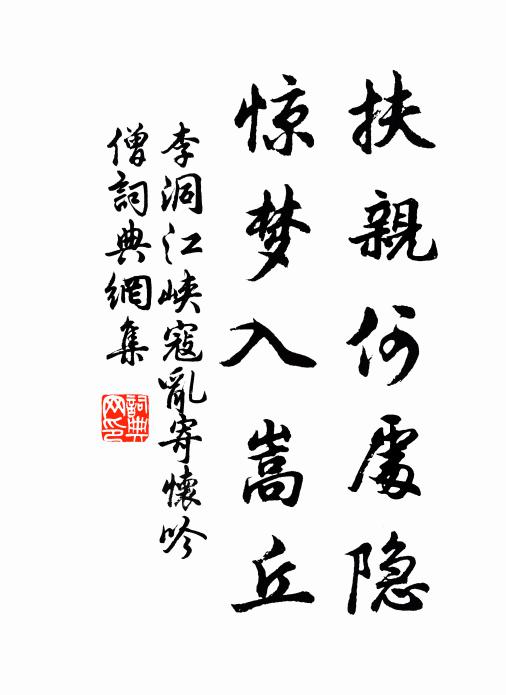 扶親何處隐
惊梦入嵩丘
李洞江峡寇亂寄懷吟
僧詞典網集
詞典
网印